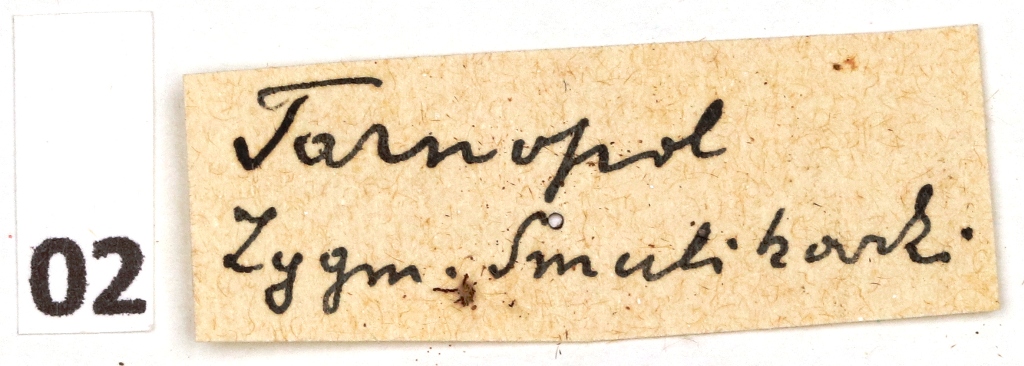 02
Tarnopol
Zygm. Smulikowsk.